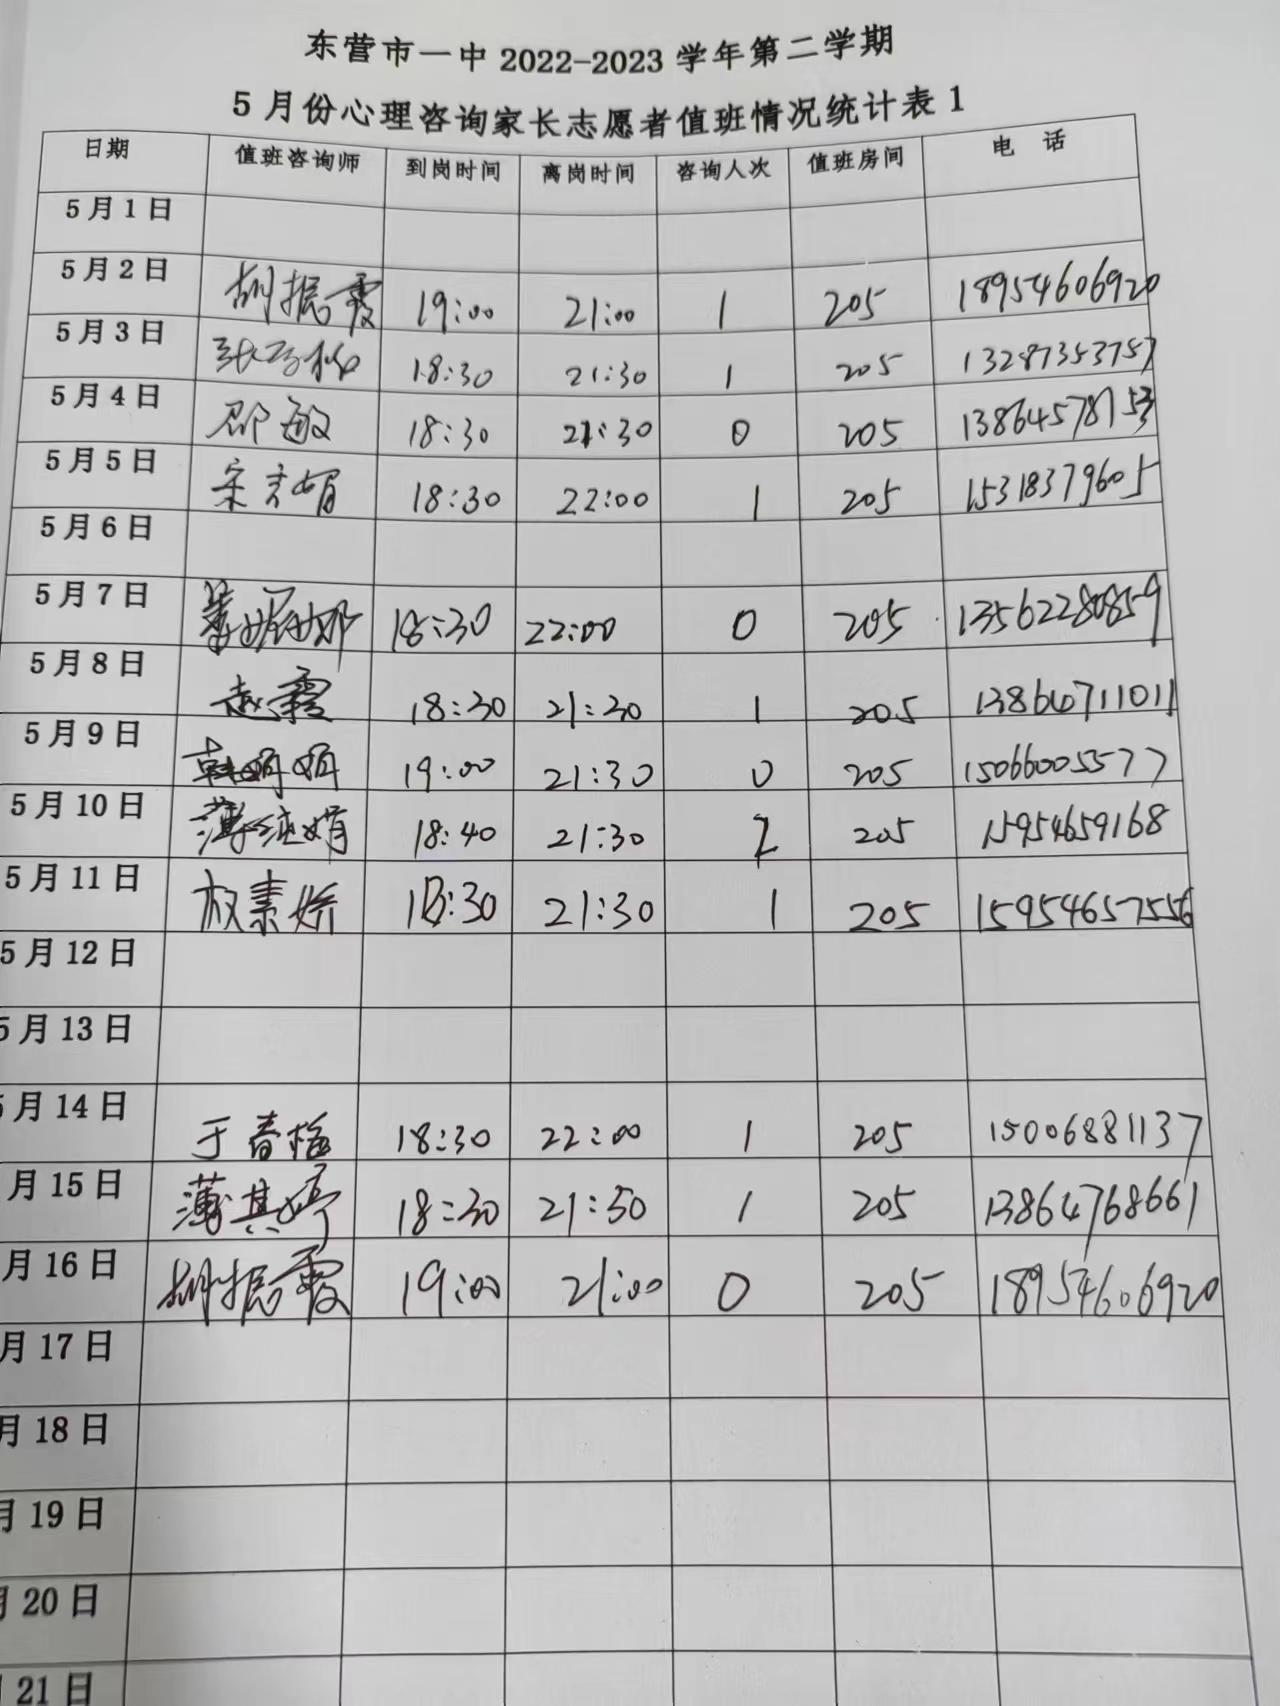 东营市一中 2022-2023 学年第二学期
5 月份心理咨询家长志愿者值班情况统计表 1
日期 值班咨询师 到岗时间 离岗时间 咨询人次 值班房间 电 话
5月1日
5月2日 胡振霞 19:00 21:00 1 205 18954606920
5月3日 18:30 21:30 1 205 13287353757
5月4日 邵敏 18:30 21:30 0 205 13864578153
5月5日 18:30 22:00 1 205 15318379605
5月6日
5月7日 18:30 22:00 0 205 13562280859
5月8日 赵霞 18:30 21:30 1 205 13864711011
5月9日 韩娟娟 19:00 21:30 0 205 15066005577
5月10日 薄纯娟 18:40 21:30 2 205 15954659168
5月11日 权素娇 18:30 21:30 1 205 15954657556
5月12日
5月13日
5月14日 于春梅 18:30 22:00 1 205 15006881137
月15日 薄其婷 18:30 21:50 1 205 13864768661
月16日 胡振霞 19:00 21:00 0 205 18954606920
月17日
月18日
月19日
月20日
21日